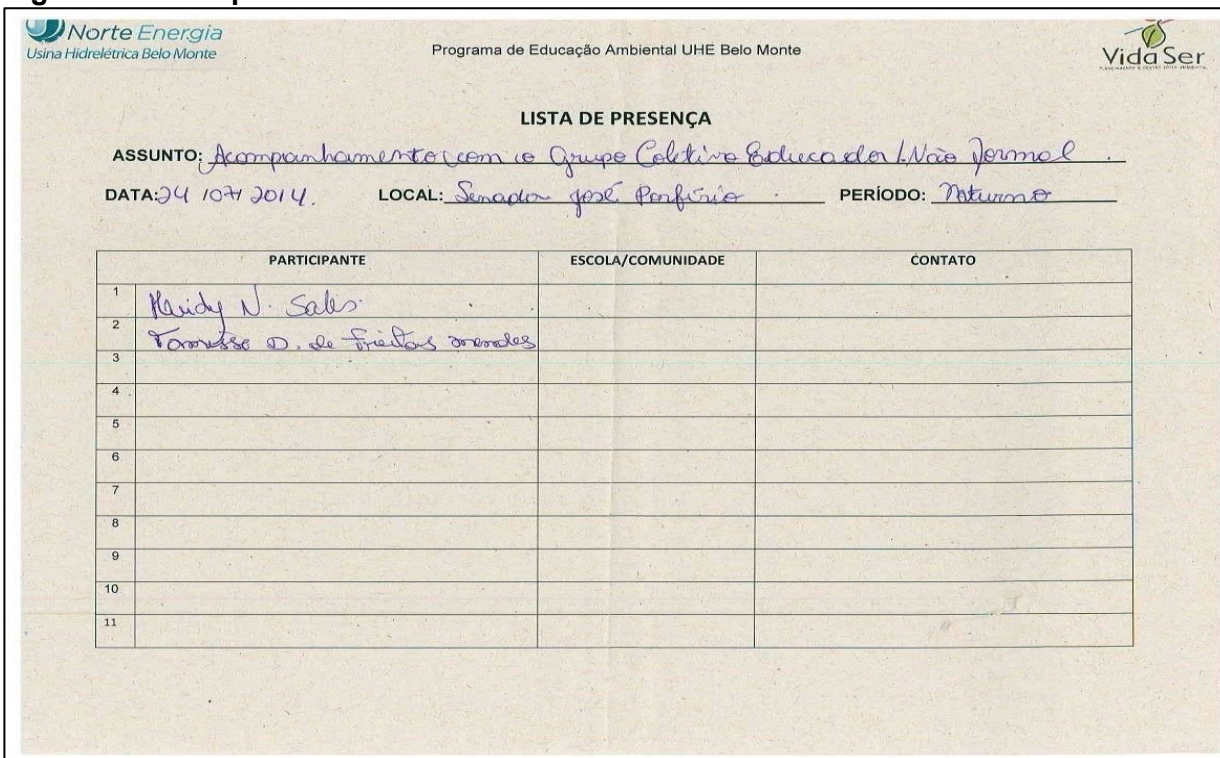 Norte Energia
Usina Hidrelétrica Belo Monte
Programa de Educação Ambiental UHE Belo Monte
VidaSer
LISTA DE PRESENÇA
ASSUNTO: Acompanhamento com o Grupo Coletivo Educador / Não Formal.
DATA: 24 / 07 / 2014. LOCAL: Senador José Porfírio. PERÍODO: Noturno
PARTICIPANTE ESCOLA/COMUNIDADE CONTATO
1 N. Sales.
2 D. de Freitas Mendes
3
4
5
6
7
8
9
10
11